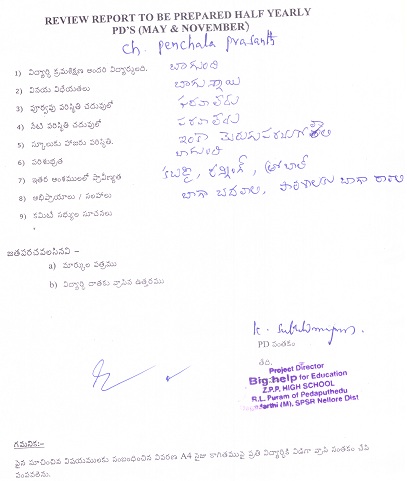 REVIEW REPORT TO BE PREPARED HALF YEARLY
PD'S (MAY & NOVEMBER)
ch. penchala prasanth
1) విద్యార్థి క్రమశిక్షణ అందరి విద్యార్థులది. బాగుంది
2) వినయ విధేయతలు బాగున్నాయి
3) పూర్వపు పరిస్థితి చదువులో పరవాలేదు
4) నేటి పరిస్థితి చదువులో పరవాలేదు
5) స్కూలుకు హాజరు పరిస్థితి. ఇంకా
6) పరిశుభ్రత బాగుంది
7) ఇతర అంశములలో ప్రావీణ్యత కబడ్డీ, రన్నింగ్,
8) అభిప్రాయాలు / సలహాలు బాగా చదవాలి, బాగా రావాలి
9) కమిటి సభ్యుల సూచనలు
జతపరచవలసినవి -
a) మార్కుల పత్రము
b) విద్యార్థి దాతకు వ్రాసిన ఉత్తరము
PD సంతకం
తేది.
Project Director
Big help for Education
Z.P.P. HIGH SCHOOL
R.L. Puram of Pedaputhedu
(M), SPSR Nellore Dist
గమనిక:-
పైన సూచించిన విషయములకు సంబంధించిన వివరణ A4 సైజు కాగితముపై ప్రతి విద్యార్థికి విడిగా వ్రాసి సంతకం చేసి
పంపవలెను.